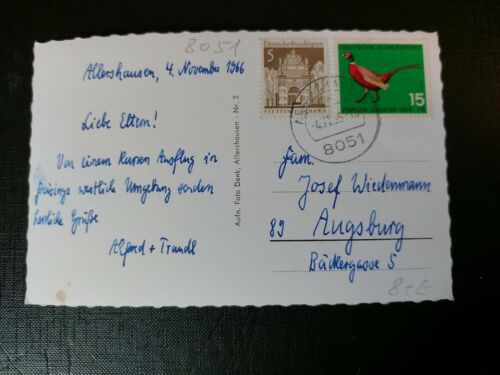 8051
Allershausen, 4. November 1966
Liebe Eltern!
Von einem kurzen Ausflug in
Freisings westliche Umgebung senden
herzliche Grüße
Alfred + Traudl
Aufn. Foto Denk, Allershausen - Nr. 2
5 Deutsche Bundespost
DEUTSCHE BUNDESPOST
15
8051
Fam.
Josef Wiedenmann
89 Augsburg
Bäckergasse 5